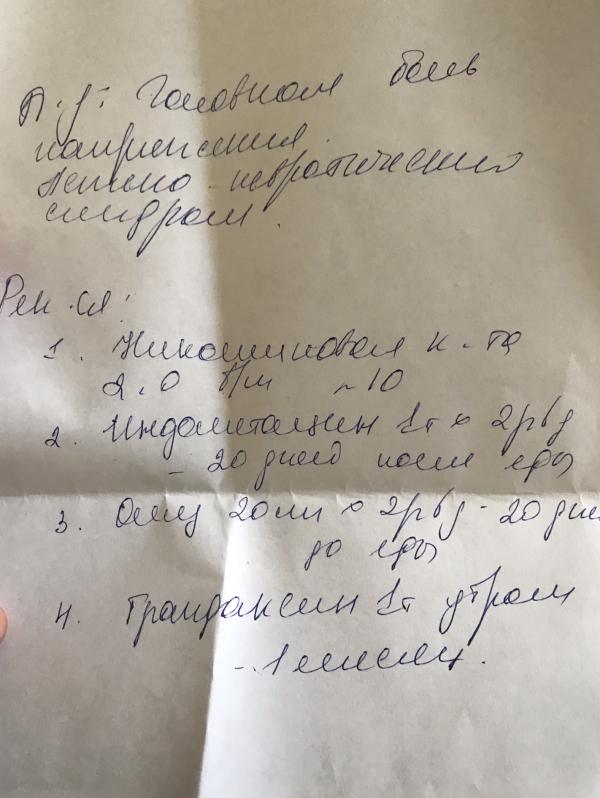 П.д: Головная боль
напряжения.
Астено-невротический
синдром.
Рек-ся:
1. Никотиновая к-та
2.0 в/м №10
2. Индометацин 1т х 2р в д
- 20 дней после еды
3. Омез 20мг х 2р в д - 20 дне
до еды
4. Грандаксин 1т утром
- 1 месяц.